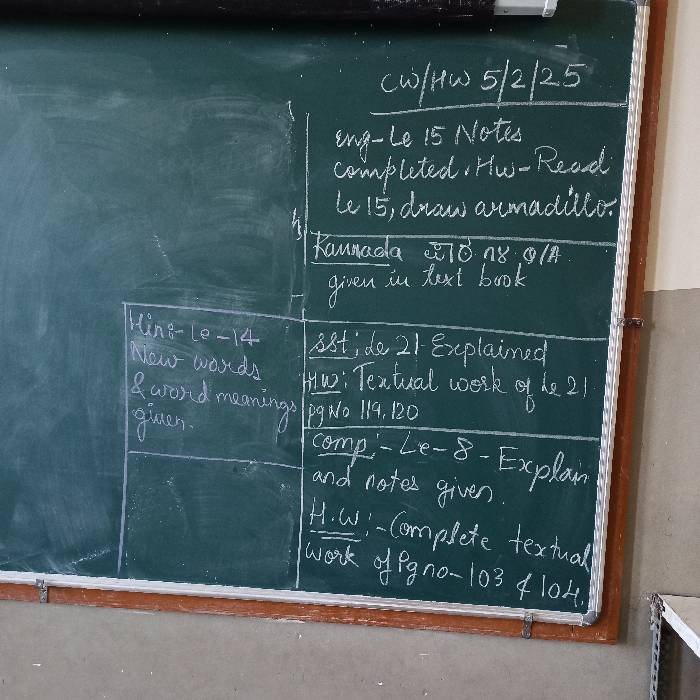 CW/HW 5/2/25
eng-Le 15 Notes
completed. Hw-Read
Le 15, draw armadillo.
Kannada ೧೮ Q/A
given in text book
Hini-Le-14
New words
& word meanings
given.
SSt: Le 21 Explained
HW: Textual work of Le 21
pg No 119, 120
Comp:- Le-8-Explain
and notes given.
H.W:-Complete textual
work of Pg no-103 & 104.